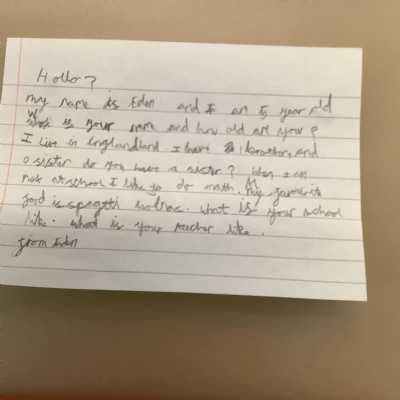 Hollo?
my name is Eden and I am 15 year old
what is your name and how old are you?
I live in englandland I have 1 brother, and
a sister do you have a sister? When I am
not at school I like to do math. My favourite
food is spagetti bolnas. what is your school
like. what is your teacher like.
from Eden